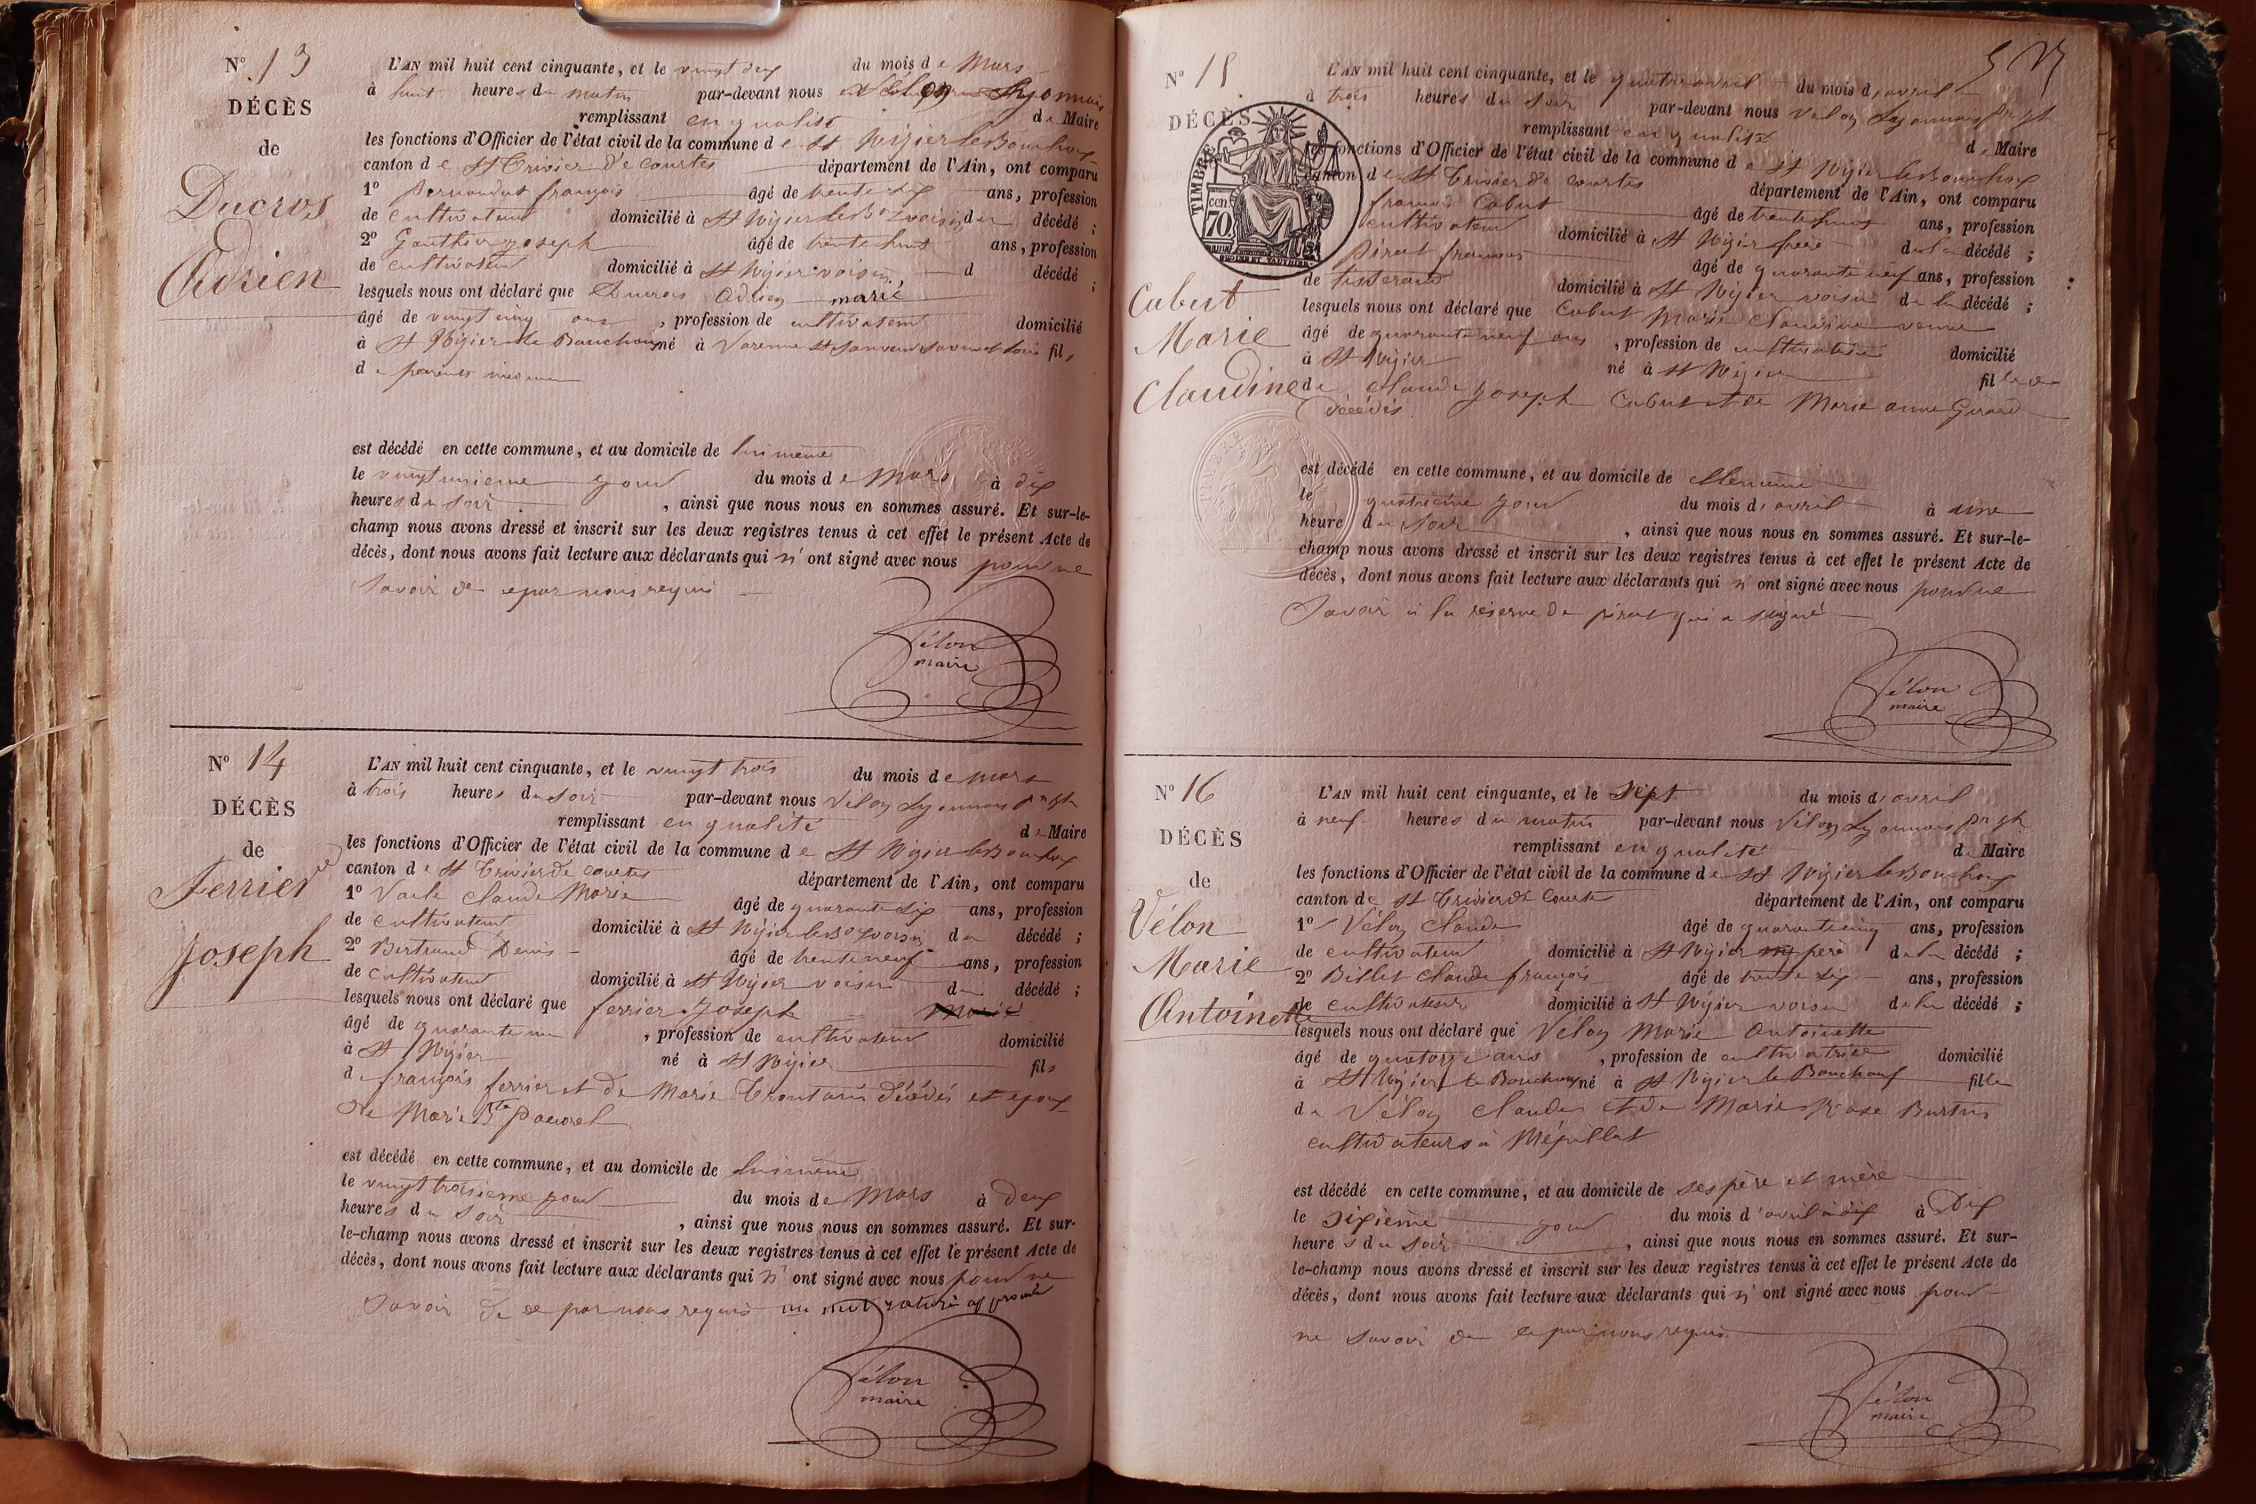 Nº 13
DÉCÈS
de
Ducros
Adrien
L'AN mil huit cent cinquante, et le vingt deux du mois de Mars
à huit heures du matin par-devant nous Vélon Lyonnais
remplissant en qualité de Maire
les fonctions d'Officier de l'état civil de la commune de St Nizier le Bouchoux
canton de St Trivier de Courtes département de l'Ain, ont comparu
1º françois âgé de trente six ans, profession
de cultivateur domicilié à St Nizier le Bx voisin du décédé ;
2º Gauthier joseph âgé de trente huit ans, profession
de cultivateur domicilié à St Nizier voisin d décédé ;
lesquels nous ont déclaré que Ducros Adrien marié
âgé de vingt cinq ans, profession de cultivateur domicilié
à St Nizier le Bouchoux né à Varenne St Sauveur Saone et Loire fils
de parents
est décédé en cette commune, et au domicile de lui même
le vingt unieme jour du mois de Mars à dix
heures du soir, ainsi que nous nous en sommes assuré. Et sur-le-
champ nous avons dressé et inscrit sur les deux registres tenus à cet effet le présent Acte de
décès, dont nous avons fait lecture aux déclarants qui n'ont signé avec nous pour ne
savoir de ce par nous requis
Vélon
maire
Nº 14
DÉCÈS
de
Ferrier
Joseph
L'AN mil huit cent cinquante, et le vingt trois du mois de mars
à trois heures du soir par-devant nous Vélon Lyonnais
remplissant en qualité de Maire
les fonctions d'Officier de l'état civil de la commune de St Nizier le Bouchoux
canton de St Trivier de Courtes département de l'Ain, ont comparu
1º Claude Marie âgé de quarante six ans, profession
de cultivateur domicilié à St Nizier le Bx voisin du décédé ;
2º Bertrand Denis âgé de trente neuf ans, profession
de cultivateur domicilié à St Nizier voisin du décédé ;
lesquels nous ont déclaré que ferrier Joseph marié
âgé de quarante un, profession de cultivateur domicilié
à St Nizier né à St Nizier fils
de françois ferrier et de Marie décédés et epoux
de Marie
est décédé en cette commune, et au domicile de lui même
le vingt troisieme jour du mois de Mars à deux
heures du soir, ainsi que nous nous en sommes assuré. Et sur-
le-champ nous avons dressé et inscrit sur les deux registres tenus à cet effet le présent Acte de
décès, dont nous avons fait lecture aux déclarants qui n'ont signé avec nous pour ne
savoir de ce par nous requis un mot raturé approuvé
Vélon
maire
Nº 15
DÉCÈS
TIMBRE
70 cen
Cabut
Marie
Claudine
L'AN mil huit cent cinquante, et le quatre avril du mois d'avril
à trois heures du soir par-devant nous Vélon Lyonnais
remplissant en qualité de Maire
les fonctions d'Officier de l'état civil de la commune de St Nizier le Bouchoux
canton de St Trivier de Courtes département de l'Ain, ont comparu
françois Cabut âgé de trente huit ans, profession
cultivateur domicilié à St Nizier frère de la décédé ;
Pérat françois âgé de quarante neuf ans, profession
de tisserand domicilié à St Nizier voisin de la décédé ;
lesquels nous ont déclaré que Cabut Marie Claudine veuve
âgé de quarante neuf ans, profession de cultivatrice domicilié
à St Nizier né à St Nizier fille de
de Claude Joseph Cabut et de Marie anne Girard
décédés
est décédé en cette commune, et au domicile de elle même
le quatrième jour du mois d'avril à une
heure du soir, ainsi que nous nous en sommes assuré. Et sur-le-
champ nous avons dressé et inscrit sur les deux registres tenus à cet effet le présent Acte de
décès, dont nous avons fait lecture aux déclarants qui n'ont signé avec nous pour ne
savoir à la réserve de pérat qui a signé
Vélon
maire
Nº 16
DÉCÈS
de
Vélon
Marie
Antoinette
L'AN mil huit cent cinquante, et le sept du mois d'avril
à neuf heures du matin par-devant nous Vélon Lyonnais
remplissant en qualité de Maire
les fonctions d'Officier de l'état civil de la commune de St Nizier le Bouchoux
canton de St Trivier de Courtes département de l'Ain, ont comparu
1º Vélon Claude âgé de quarante cinq ans, profession
de cultivateur domicilié à St Nizier père de la décédé ;
2º Billet Claude françois âgé de trente six ans, profession
de cultivateur domicilié à St Nizier voisin de la décédé ;
lesquels nous ont déclaré que Velon Marie Antoinette
âgé de quatorze ans, profession de cultivatrice domicilié
à St Nizier le Bouchoux né à St Nizier le Bouchoux fille
de Vélon Claude et de Marie Roze
cultivateurs à Mépillat
est décédé en cette commune, et au domicile de ses père et mère
le sixieme jour du mois d'avril à dix à Dix
heures du soir, ainsi que nous nous en sommes assuré. Et sur-
le-champ nous avons dressé et inscrit sur les deux registres tenus à cet effet le présent Acte de
décès, dont nous avons fait lecture aux déclarants qui n'ont signé avec nous pour
ne savoir de ce par nous requis
Vélon
maire